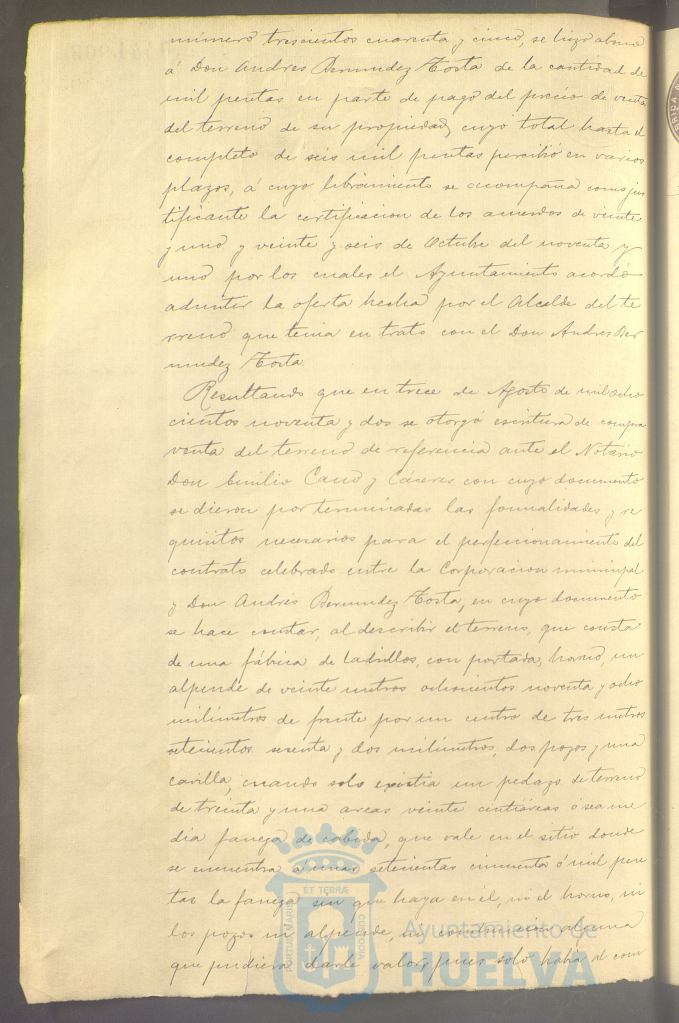 número trescientos cuarenta y cinco, se hizo abono
á Don Andres Bermudez Tosta de la cantidad de
mil pesetas en parte de pago del precio de venta
del terreno de su propiedad, cuyo total hasta el
completo de seis mil pesetas percibió en varios
plazos, á cuyo libramiento se acompaña como jus
tificante la certificacion de los acuerdos de veinte
y uno y veinte y seis de Octubre del noventa y
uno por los cuales el Ayuntamiento acordó
admitir la oferta hecha por el Alcalde del te
rreno que tenia en trato con el Don Andres Ber
mudez Tosta.
Resultando que en trece de Agosto de mil ocho
cientos noventa y dos se otorgó escritura de compra
venta del terreno de referencia ante el Notario
Don Emilio Cano y Cáceres con cuyo documento
se dieron por terminadas las formalidades y re
quisitos necesarios para el perfeccionamiento del
contrato celebrado entre la Corporacion municipal
y Don Andrés Bermudez Tosta, en cuyo documento
se hace constar, al describir el terreno, que consta
de una fábica de ladrillos, con portada, horno, un
alpende de veinte metros ochocientos noventa y ocho
milimetros de frente por un centro de tres metros
setecientos sesenta y dos milimetros, dos pozos y una
casilla, cuando solo existia un pedazo de terreno
de treinta y una areas veinte centiáreas ó sea me
dia fanega de cabida, que vale en el sitio donde
se encuentra á unas setecientas cincuenta ó mil pese
tas la fanega sin que haya en él, ni el horno, ni
los pozos ni alpende, ni construccion alguna
que pudiera darle valor, pues solo habia el con
PORTUS MARIS ET TERRÆ CUSTODIA
Ayuntamiento de
HUELVA